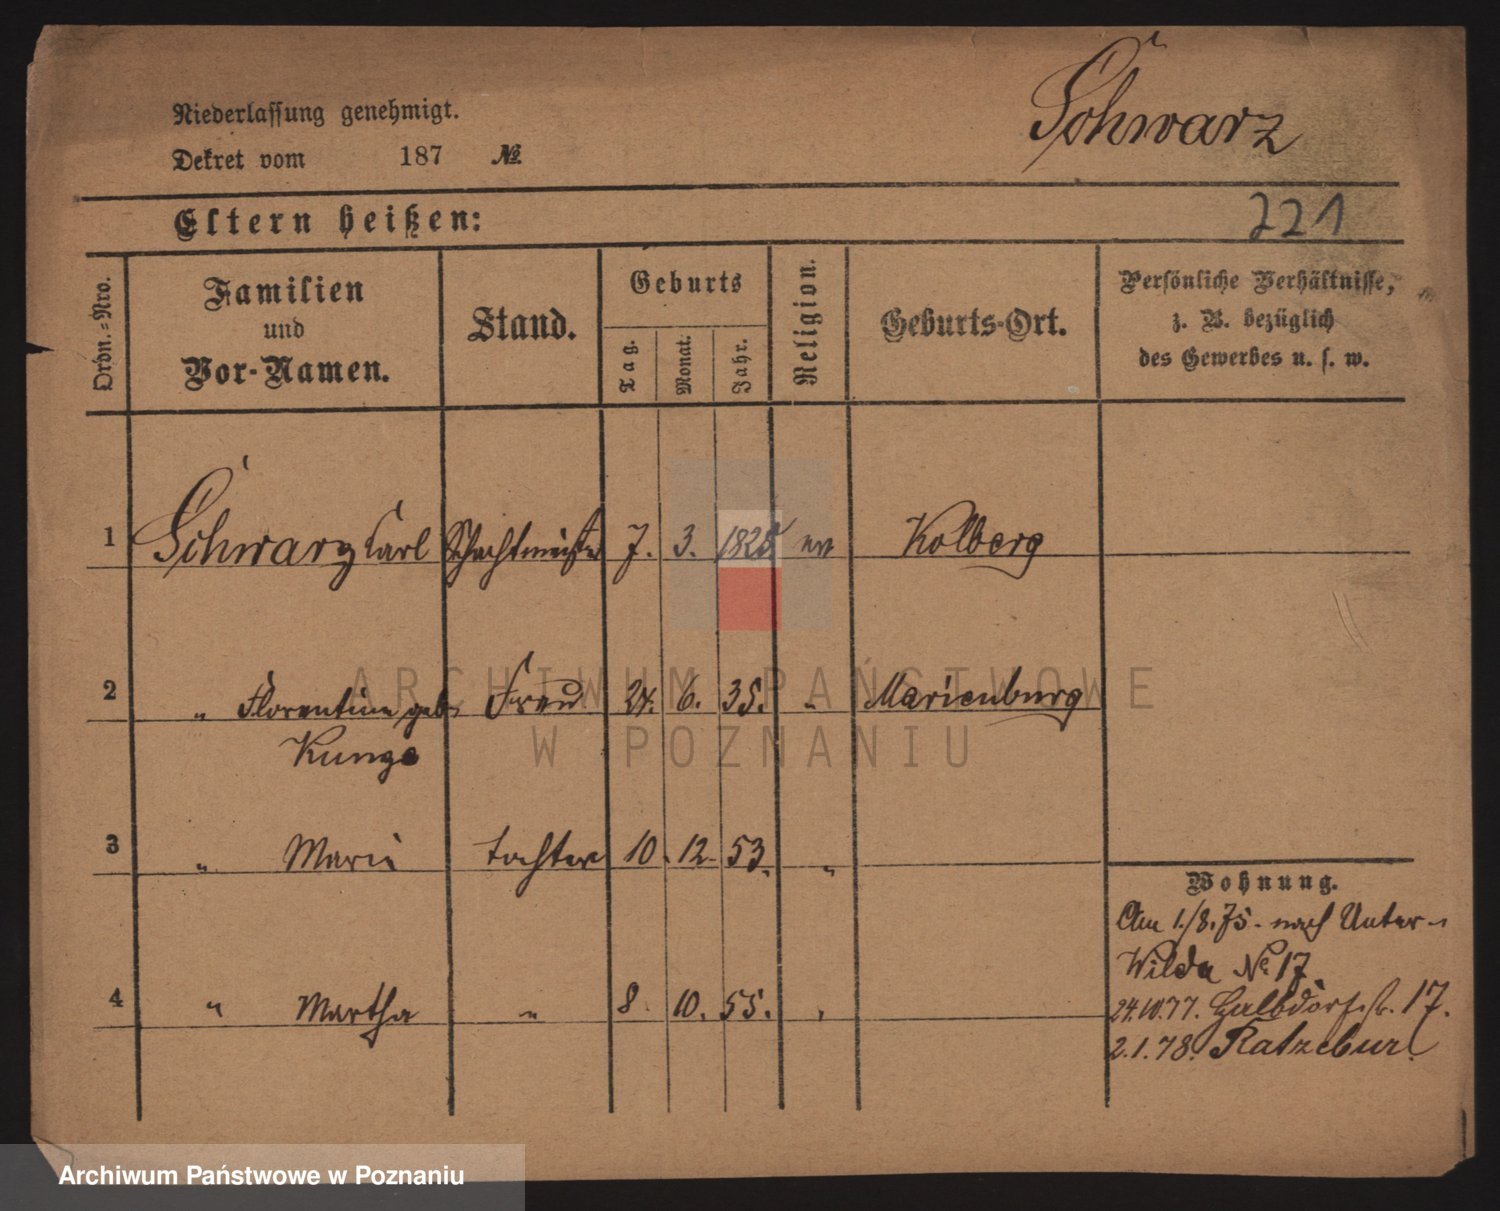 Schwarz
Niederlassung genehmigt.
Dekret vom 187 №
Eltern heißen:
221
Ordn.-Nro.
Familien
und
Vor-Namen.
Stand.
Geburts
Tag.
Monat.
Jahr.
Religion.
Geburts-Ort.
Persönliche Verhältnisse,
z. B. bezüglich
des Gewerbes u. s. w.
1 Schwarz Carl Schachtmeister 7. 3. 1825 ev Kolberg
2 " Florentine geb. Frau 24. 6. 35. " Marienburg
Kunge
3 " Marie tochter 10. 12. 53. "
4 " Martha " 8. 10. 55. "
Wohnung.
Am 1./8.75. nach Unter-
Wilda № 17
24.10.77. Halbdorfstr. 17.
2.1.78. Ratzebur
ARCHIWUM PAŃSTWOWE
W POZNANIU
Archiwum Państwowe w Poznaniu